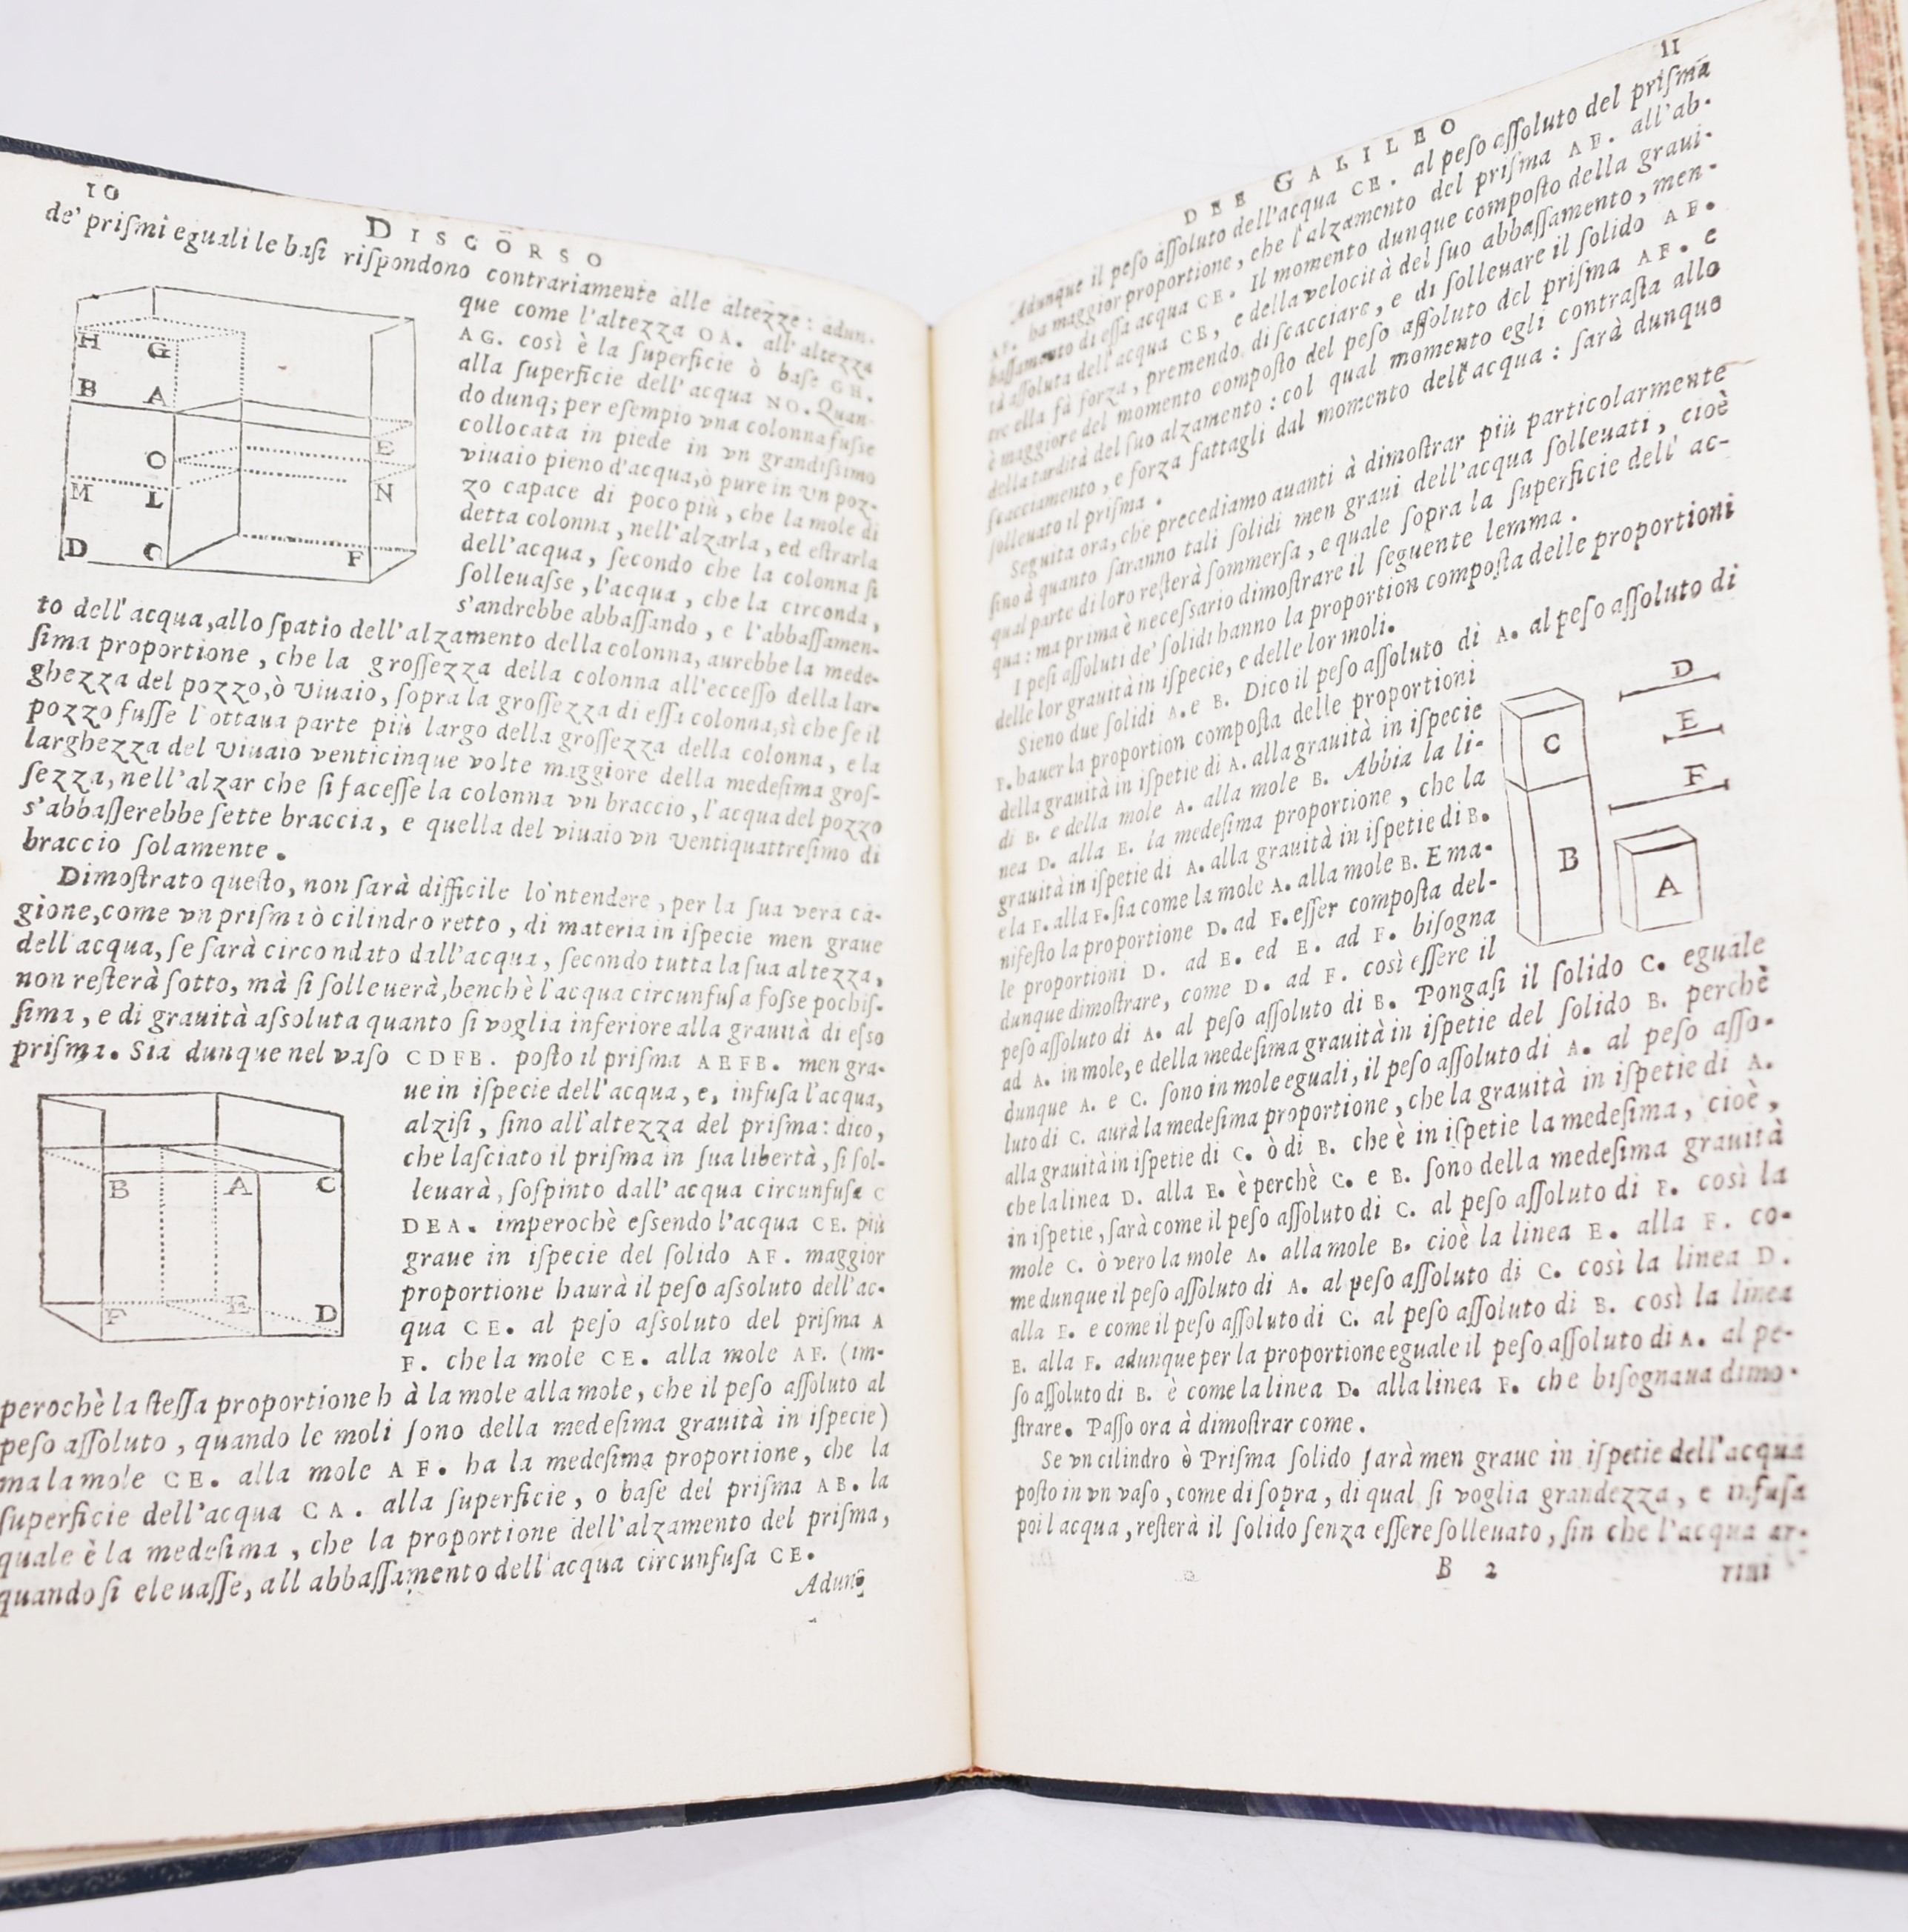 10
DISCORSO
de' priſmi eguali le baſi riſpondono contrariamente alle altezze: adun-
que come l'altezza OA. all'altezza
AG. così è la ſuperficie ò baſe GH.
alla ſuperficie dell'acqua NO. Quan-
do dunq; per eſempio vna colonna fuſſe
collocata in piede in vn grandiſſimo
viuaio pieno d'acqua, ò pure in vn poz-
zo capace di poco più, che la mole di
detta colonna, nell'alzarla, ed eſtrarla
dell'acqua, ſecondo che la colonna ſi
ſolleuaſse, l'acqua, che la circonda,
s'andrebbe abbaſſando, e l'abbaſſamen-
H G
B A
E
O
M L N
D C F
to dell'acqua, allo ſpatio dell'alzamento della colonna, aurebbe la mede-
ſima proportione, che la groſſezza della colonna all'ecceſſo della lar-
ghezza del pozzo, ò viuaio, ſopra la groſſezza di eſſa colonna, sì che ſe il
pozzo fuſſe l'ottaua parte più largo della groſſezza della colonna, e la
larghezza del viuaio venticinque volte maggiore della medeſima groſ-
ſezza, nell'alzar che ſi faceſſe la colonna vn braccio, l'acqua del pozzo
s'abbaſſerebbe ſette braccia, e quella del viuaio vn ventiquattreſimo di
braccio ſolamente.
Dimoſtrato queſto, non ſarà difficile lo'ntendere, per la ſua vera ca-
gione, come vn priſma ò cilindro retto, di materia in iſpecie men graue
dell'acqua, ſe ſarà circondato dall'acqua, ſecondo tutta la ſua altezza,
non reſterà ſotto, mà ſi ſolleuerà, benchè l'acqua circunfuſa foſse pochiſ-
ſima, e di grauità aſsoluta quanto ſi voglia inferiore alla grauità di eſso
priſma. Sia dunque nel vaſo CDFB. poſto il priſma AEFB. men gra-
ue in iſpecie dell'acqua, e, infuſa l'acqua,
alziſi, ſino all'altezza del priſma: dico,
che laſciato il priſma in ſua libertà, ſi ſol-
leuarà, ſoſpinto dall'acqua circunfuſa C
DEA. imperochè eſsendo l'acqua CE. più
graue in iſpecie del ſolido AF. maggior
proportione haurà il peſo aſsoluto dell'ac-
qua CE. al peſo aſsoluto del priſma A
F. che la mole CE. alla mole AF. (im-
B A C
F E D
perochè la ſteſſa proportione h à la mole alla mole, che il peſo aſſoluto al
peſo aſſoluto, quando le moli ſono della medeſima grauità in iſpecie)
ma la mole CE. alla mole AF. ha la medeſima proportione, che la
ſuperficie dell'acqua CA. alla ſuperficie, o baſe del priſma AB. la
quale è la medeſima, che la proportione dell'alzamento del priſma,
quando ſi eleuaſſe, all abbaſſamento dell'acqua circunfuſa CE.
Adunq;
11
DEL GALILEO
Adunque il peſo aſſoluto dell'acqua CE. al peſo aſſoluto del priſma
AF. ha maggior proportione, che l'alzamento del priſma AF. all'ab-
baſſamento di eſſa acqua CE. Il momento dunque compoſto della graui-
tà aſſoluta dell'acqua CE, e della velocità del ſuo abbaſſamento, men-
tre ella fà forza, premendo, di ſcacciare, e di ſolleuare il ſolido AF.
è maggiore del momento compoſto del peſo aſſoluto del priſma AF. e
della tardità del ſuo alzamento: col qual momento egli contraſta allo
ſcacciamento, e forza fattagli dal momento dell'acqua: ſarà dunque
ſolleuato il priſma.
Seguita ora, che precediamo auanti à dimoſtrar più particolarmente
ſino à quanto ſaranno tali ſolidi men graui dell'acqua ſolleuati, cioè
qual parte di loro reſterà ſommerſa, e quale ſopra la ſuperficie dell'ac-
qua: ma prima è neceſsario dimoſtrare il ſeguente lemma.
I peſi aſſoluti de' ſolidi hanno la proportion compoſta delle proportioni
delle lor grauità in iſpecie, e delle lor moli.
Sieno due ſolidi A. e B. Dico il peſo aſſoluto di A. al peſo aſſoluto di
B. hauer la proportion compoſta delle proportioni
della grauità in iſpetie di A. alla grauità in iſpecie
di B. e della mole A. alla mole B. Abbia la li-
nea D. alla E. la medeſima proportione, che la
grauità in iſpetie di A. alla grauità in iſpetie di B.
e la E. alla F. ſia come la mole A. alla mole B. E ma-
nifeſto la proportione D. ad F. eſſer compoſta del-
le proportioni D. ad E. ed E. ad F. biſogna
dunque dimoſtrare, come D. ad F. così eſſere il
D
E
F
C
B
A
peſo aſſoluto di A. al peſo aſſoluto di B. Pongaſi il ſolido C. eguale
ad A. in mole, e della medeſima grauità in iſpetie del ſolido B. perchè
dunque A. e C. ſono in mole eguali, il peſo aſſoluto di A. al peſo aſſo-
luto di C. aurà la medeſima proportione, che la grauità in iſpetie di A.
alla grauità in iſpetie di C. ò di B. che è in iſpetie la medeſima, cioè,
che la linea D. alla E. è perchè C. e B. ſono della medeſima grauità
in iſpetie, ſarà come il peſo aſſoluto di C. al peſo aſſoluto di B. così la
mole C. ò vero la mole A. alla mole B. cioè la linea E. alla F. co-
me dunque il peſo aſſoluto di A. al peſo aſſoluto di C. così la linea D.
alla E. e come il peſo aſſoluto di C. al peſo aſſoluto di B. così la linea
E. alla F. adunque per la proportione eguale il peſo aſſoluto di A. al pe-
ſo aſſoluto di B. è come la linea D. alla linea F. che biſognaua dimo-
ſtrare. Paſſo ora à dimoſtrar come.
Se vn cilindro ò Priſma ſolido ſarà men graue in iſpetie dell'acqua
poſto in vn vaſo, come di ſopra, di qual ſi voglia grandezza, e infuſa
poi l acqua, reſterà il ſolido ſenza eſſere ſolleuato, ſin che l'acqua ar-
B 2
riui